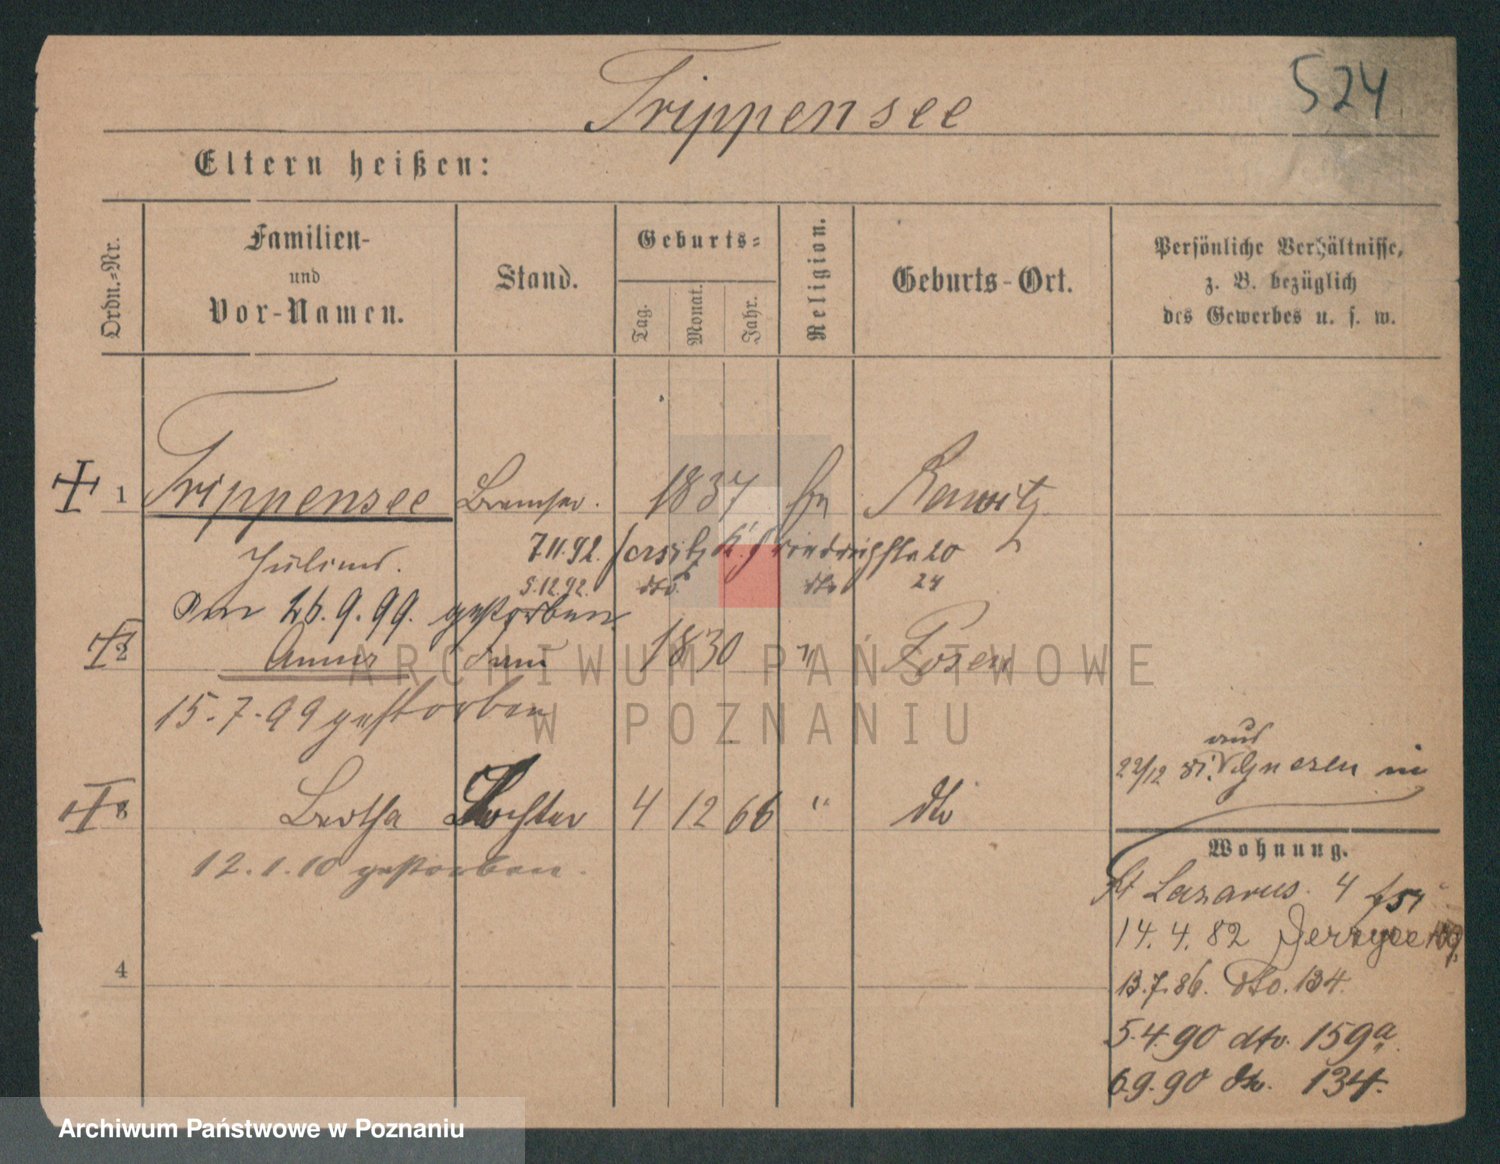 524
Trippensee
Eltern heißen:
Ordn.-Nr.
Familien-
und
Vor-Namen.
Stand.
Geburts-
Tag.
Monat.
Jahr.
Religion.
Geburts-Ort.
Persönliche Verhältnisse,
z. B. bezüglich
des Gewerbes u. s. w.
1 Trippensee Bremser. 1837 Rawitz
Julius. 7.11.92.
5.12.92. dto dto 24
Am 26.9.99. gestorben.
2 Anna Frau 1830 " Posen
15.-7.-99 gestorben
aus
22/12 Gnesen in
3 Bertha Tochter 4 12 66 " dto
12.1.10 gestorben.
Wohnung.
St Lazarus. 4
14. 4. 82 Jerzyce
4
13.7.86. dto. 134.
5.4.90 dto. 159a
6.9.90 dto. 134.
ARCHIWUM PAŃSTWOWE
W POZNANIU
Archiwum Państwowe w Poznaniu